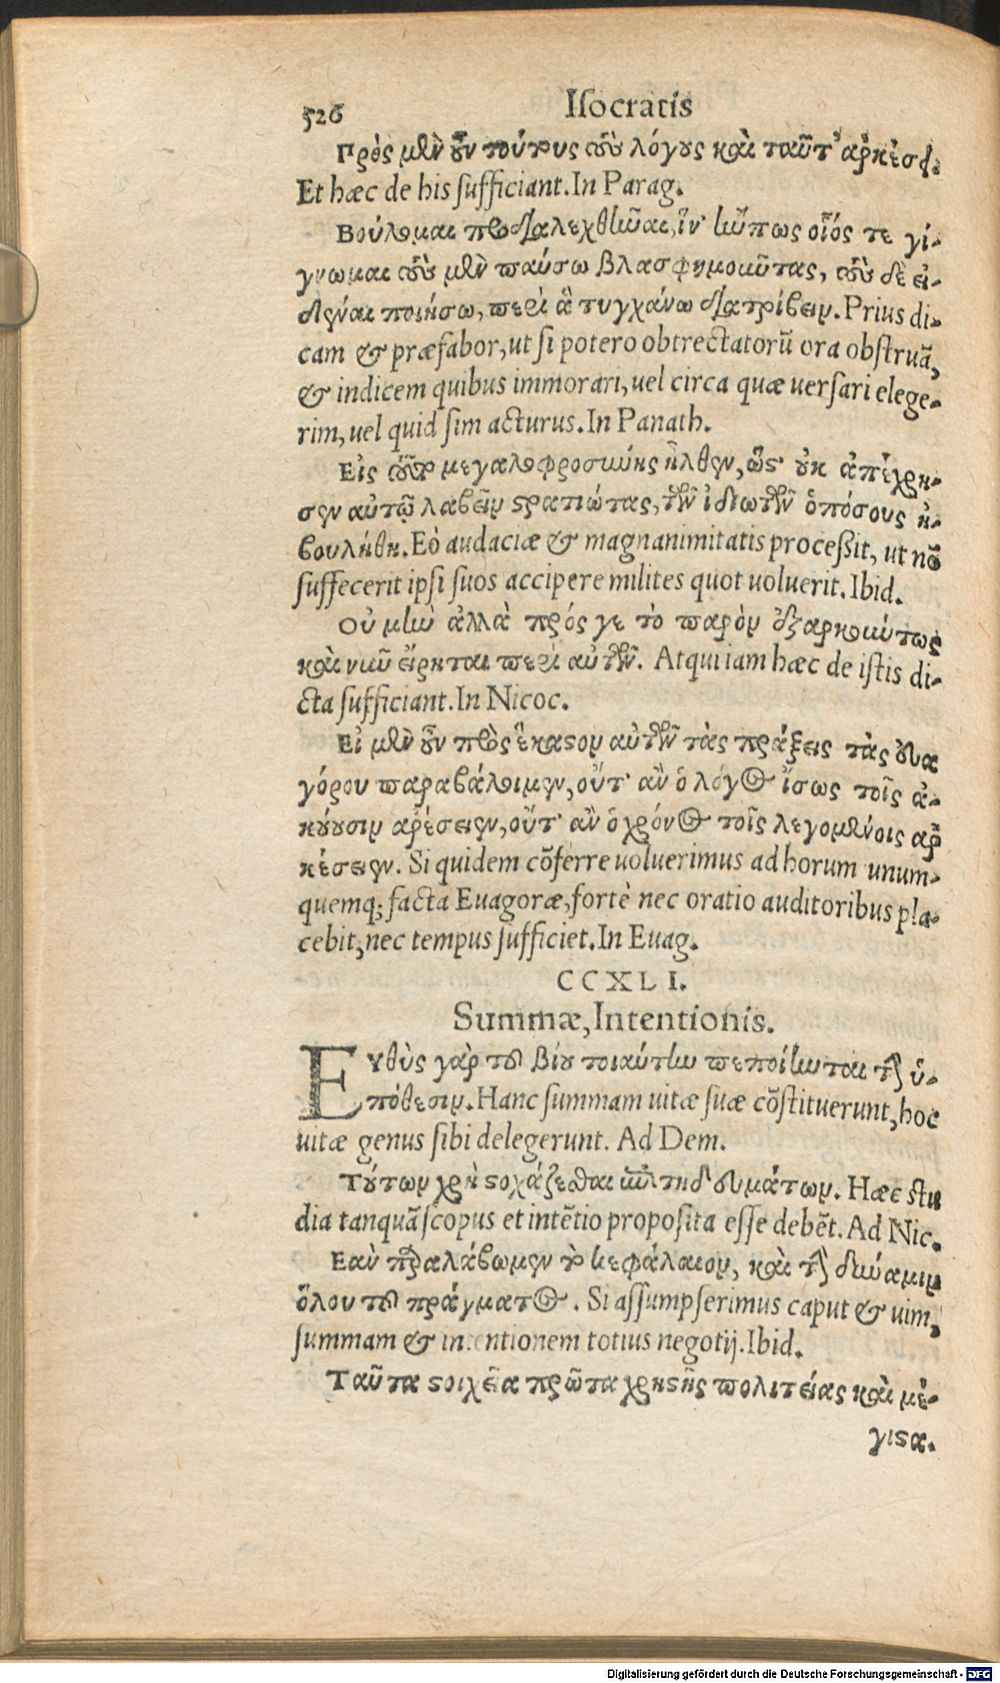 526 Isocratis
Πρὸς μὲν οὖν τούτους τοὺς λόγους καὶ ταῦτ' ἀρκέσει.
Et hæc de his sufficiant. In Parag.
Βούλομαι προδιαλεχθῆναι, ἵν' ἤν πως οἷός τε γέ-
νωμαι τοὺς μὲν παύσω βλασφημοῦντας, τοὺς δὲ εἰ-
δέναι ποιήσω, περὶ ἃ τυγχάνω διατρίβειν. Prius di-
cam & præfabor, ut si potero obtrectatorũ ora obstruã,
& indicem quibus immorari, uel circa quæ uersari elege-
rim, uel quid sim acturus. In Panath.
Εἰς τοῦτο μεγαλοφροσύνης ἦλθεν, ὥστ' οὐκ ἀπέχρη-
σεν αὐτῷ λαβεῖν στρατιώτας, τῶν ἰδιωτῶν ὁπόσους ἠ-
βουλήθη. Eò audaciæ & magnanimitatis processit, ut nõ
suffecerit ipsi suos accipere milites quot uoluerit. Ibid.
Οὐ μὴν ἀλλὰ πρός γε τὸ παρὸν ἐξαρκούντως
καὶ νῦν εἴρηται περὶ αὐτῶν. Atqui iam hæc de istis di-
cta sufficiant. In Nicoc.
Εἰ μὲν οὖν πρὸς ἕκαστον αὐτῶν τὰς πράξεις τὰς Εὐα
γόρου παραβάλοιμεν, οὔτ' ἂν ὁ λόγος ἴσως τοῖς ἀ-
κούουσιν ἀρέσειεν, οὔτ' ἂν ὁ χρόνος τοῖς λεγομένοις ἀρ
κέσειεν. Si quidem cõferre uoluerimus ad horum unum-
quemq; facta Euagoræ, fortè nec oratio auditoribus pla-
cebit, nec tempus sufficiet. In Euag.
CCXLI.
Summæ, Intentionis.
Εὐθὺς γὰρ τοῦ βίου τοιαύτην πεποίηνται τὴν ὑ-
πόθεσιν. Hanc summam uitæ suæ cõstituerunt, hoc
uitæ genus sibi delegerunt. Ad Dem.
Τούτων χρὴ στοχάζεσθαι ἐπιτηδευμάτων. Hæc stu
dia tanquã scopus et intẽtio proposita esse debẽt. Ad Nic.
Εὰν παραλάβωμεν τὸ κεφάλαιον, καὶ τὴν δύναμιν
ὅλου τοῦ πράγματος. Si assumpserimus caput & uim,
summam & intentionem totius negotij. Ibid.
Ταῦτα στοιχεῖα πρῶτα χρηστῆς πολιτείας καὶ μέ-
γιστα.
Digitalisierung gefördert durch die Deutsche Forschungsgemeinschaft - DFG